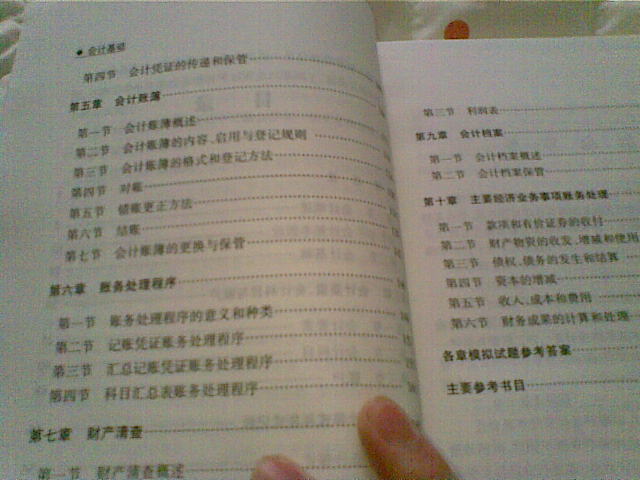 会计基础
第四节 会计凭证的传递和保管
第五章 会计账簿
第一节 会计账簿概述
第二节 会计账簿的内容、启用与登记规则
第三节 会计账簿的格式和登记方法
第四节 对账
第五节 错账更正方法
第六节 结账
第七节 会计账簿的更换与保管
第六章 账务处理程序
第一节 账务处理程序的意义和种类
第二节 记账凭证账务处理程序
第三节 汇总记账凭证账务处理程序
第四节 科目汇总表账务处理程序
第七章 财产清查
第一节 财产清查概述
第三节 利润表
第九章 会计档案
第一节 会计档案概述
第二节 会计档案保管
第十章 主要经济业务事项账务处理
第一节 款项和有价证券的收付
第二节 财产物资的收发、增减和使用
第三节 债权、债务的发生和结算
第四节 资本的增减
第五节 收入、成本和费用
第六节 财务成果的计算和处理
各章模拟试题参考答案
主要参考书目